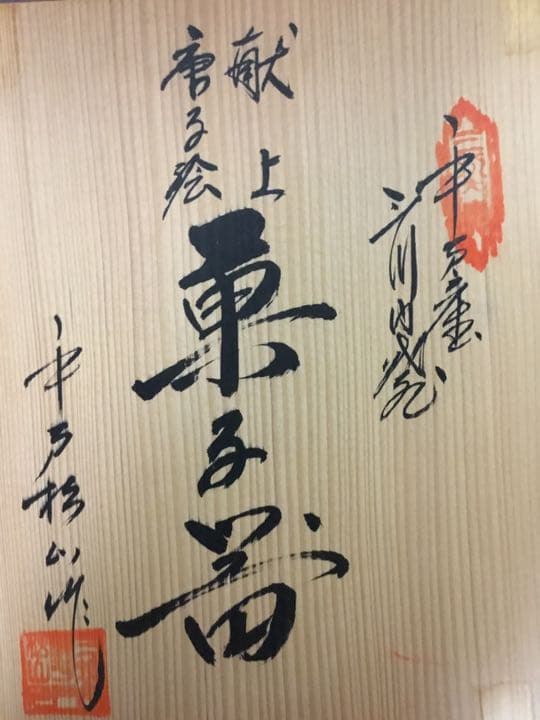 平戸産
三川内焼
献上
唐子絵
菓子器
平戸松山作